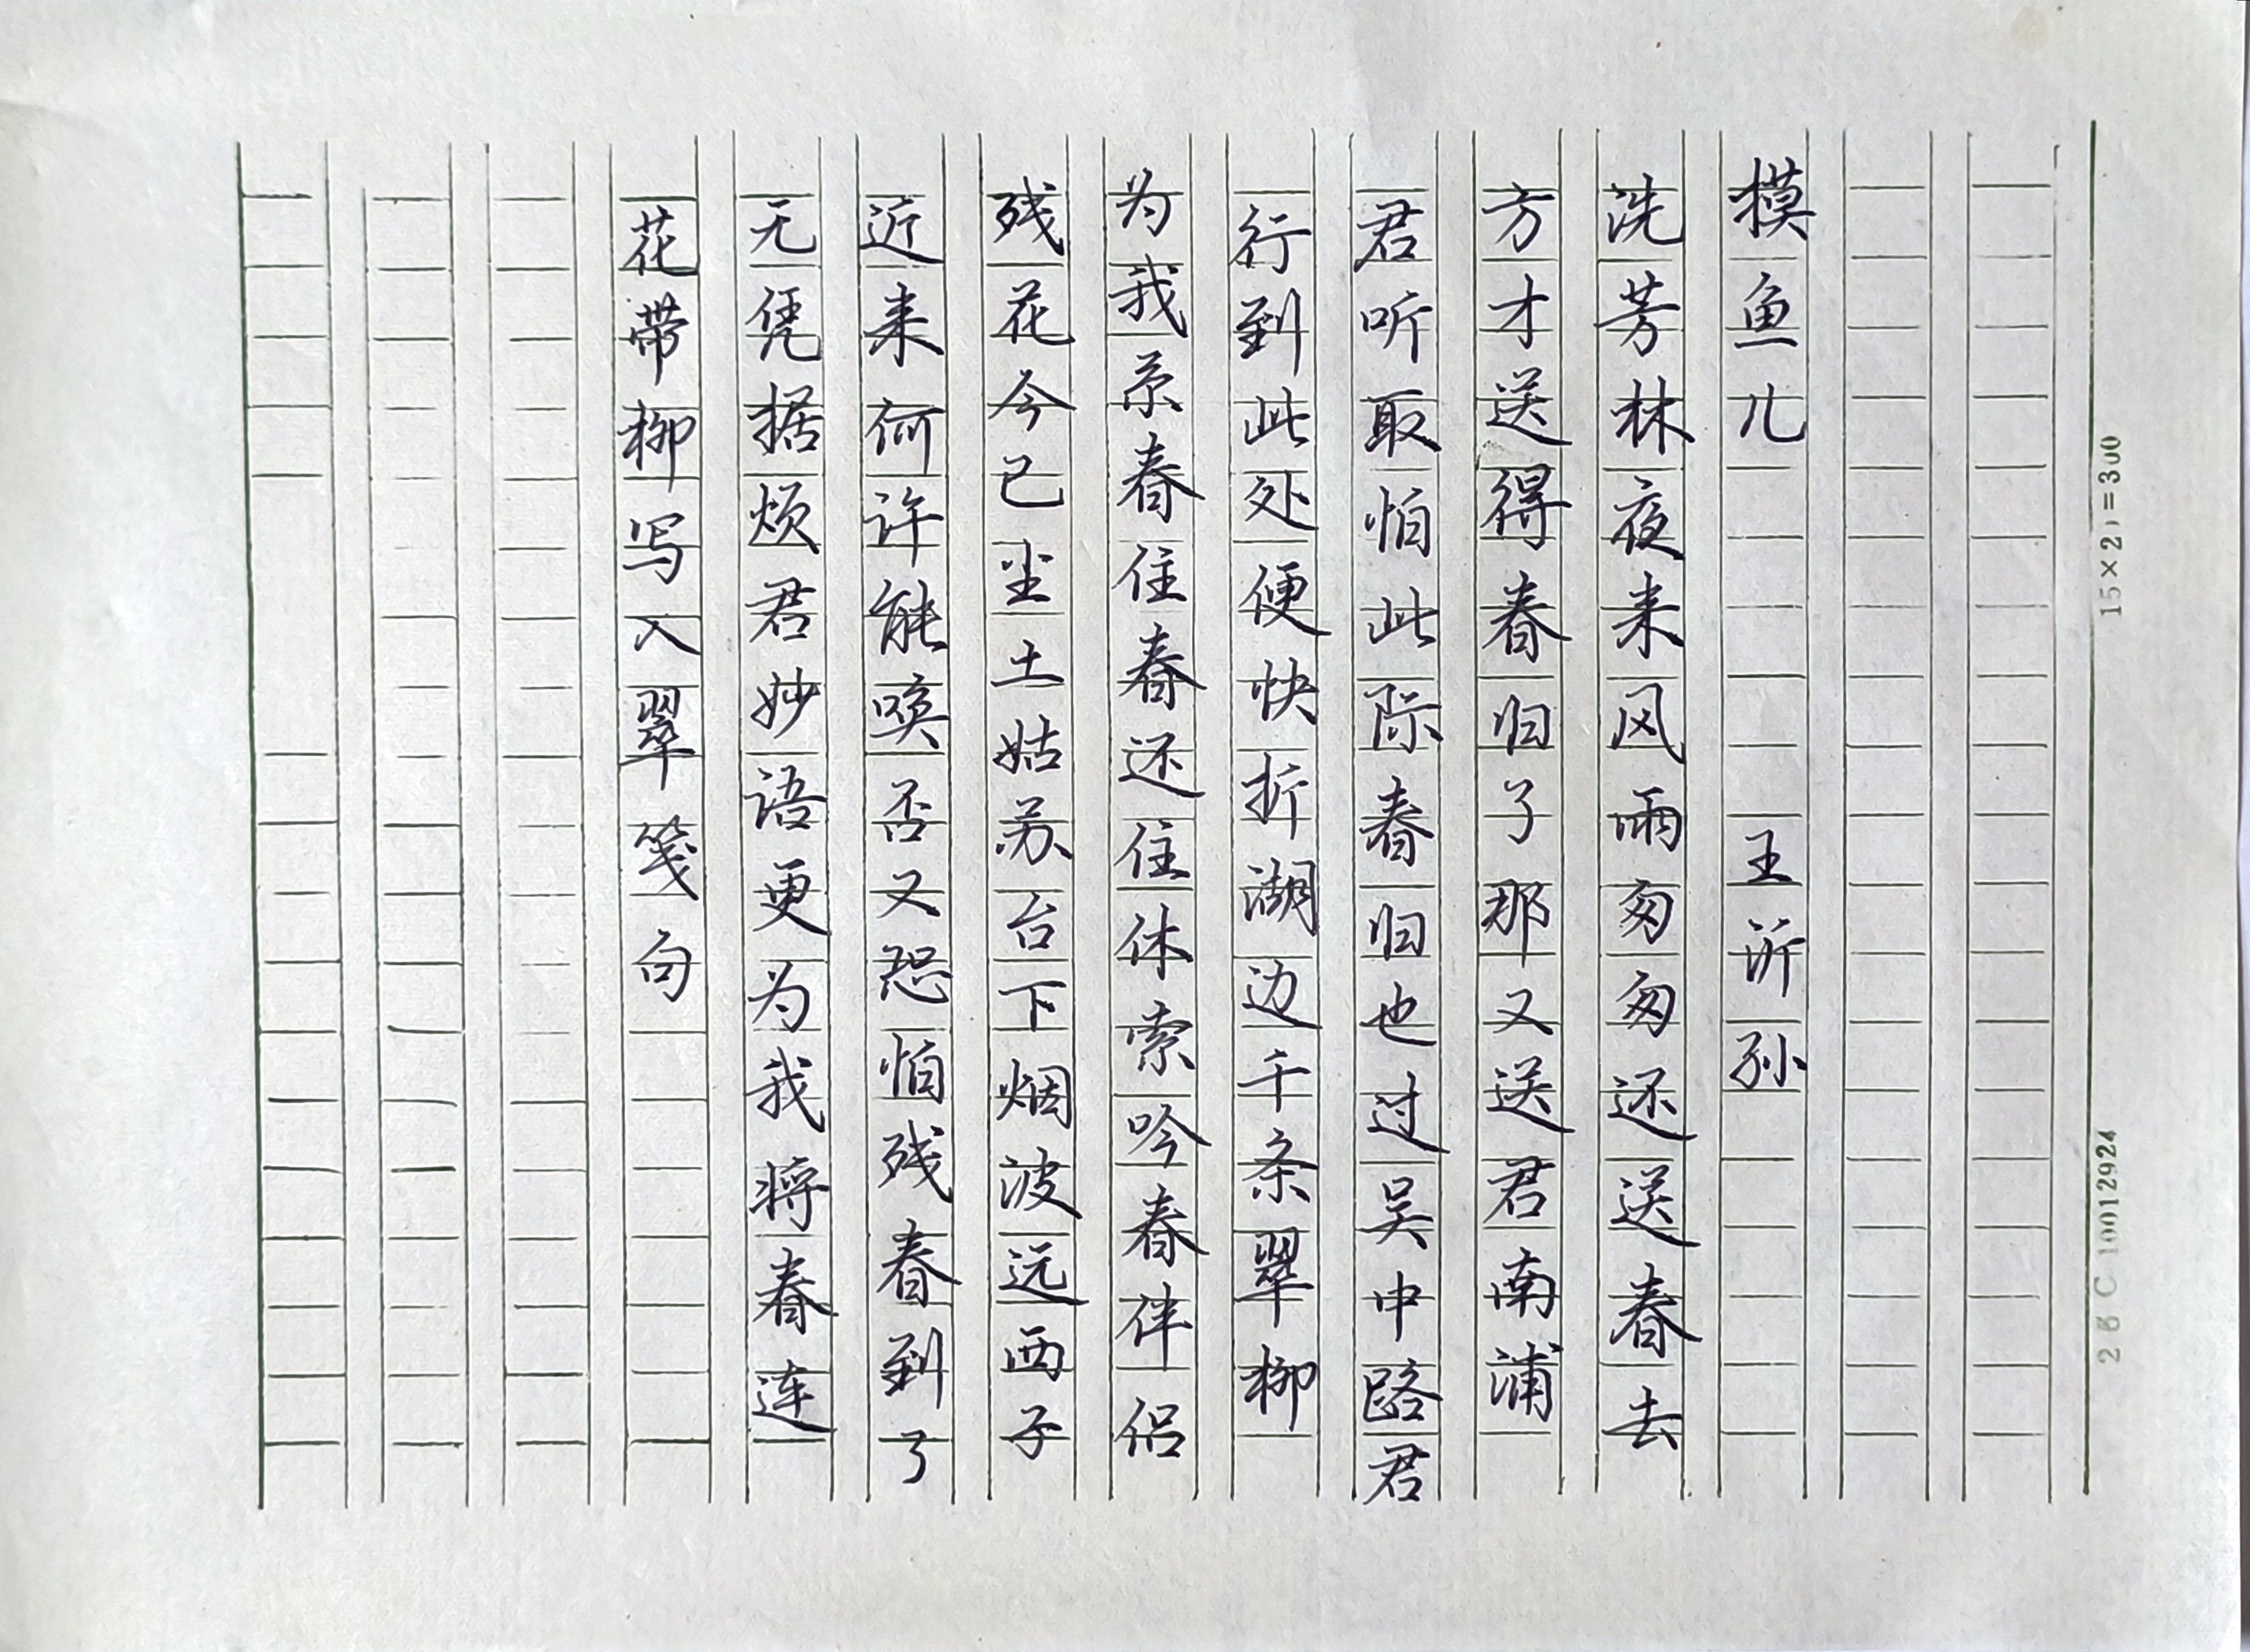 摸鱼儿 王沂孙
洗芳林夜来风雨匆匆还送春去
方才送得春归了那又送君南浦
君听取怕此际春归也过吴中路君
行到此处便快折湖边千条翠柳
为我系春住春还住休索吟春伴侣
残花今已尘土姑苏台下烟波远西子
近来何许能唤否又恐怕残春到了
无凭据烦君妙语更为我将春连
花带柳写入翠笺句
15×20=300
26 C 10012924